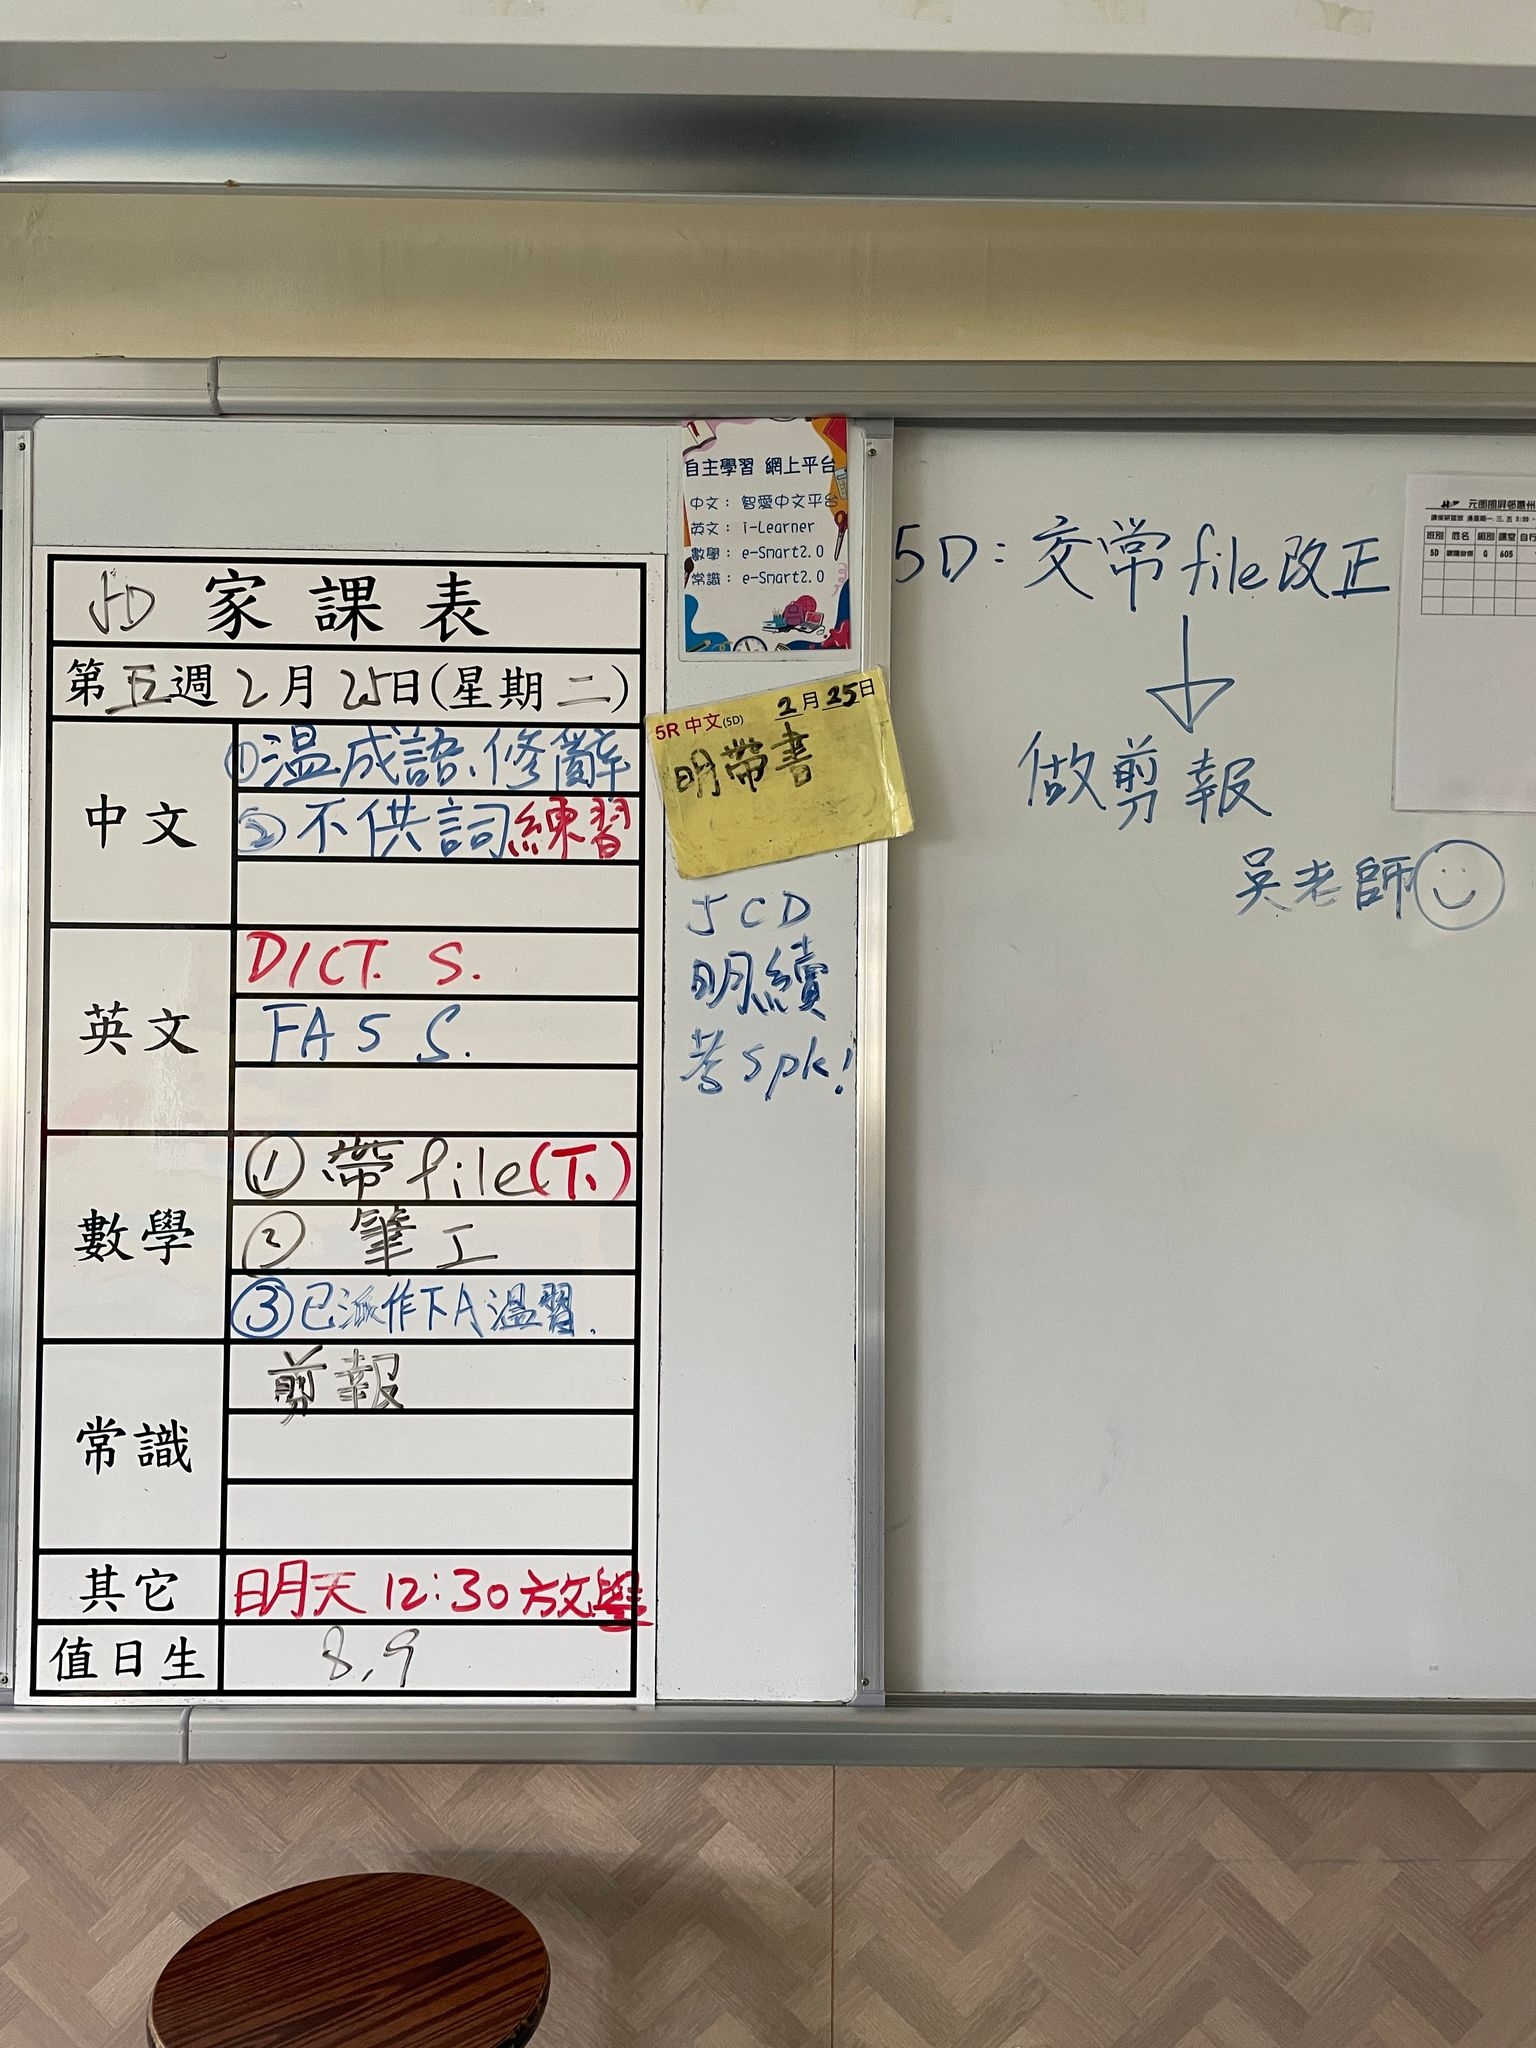 5D 家課表
第五週2月25日(星期二)
中文
①溫成語、修辭
②不供詞練習
英文
DICT. S.
FA5 S.
數學
①帶file(下)
② 筆工
③已派作下A溫習.
常識
剪報
其它
明天12:30放學
值日生
8,9
自主學習 網上平台
中文：智愛中文平台
英文：i-Learner
數學：e-Smart2.0
常識：e-Smart2.0
5R 中文(5D) 2月25日
明帶書
5CD
明續
考spk!
5D：交常file改正
↓
做剪報
吳老師
班別 姓名 組別 課堂 自行
5D G 605